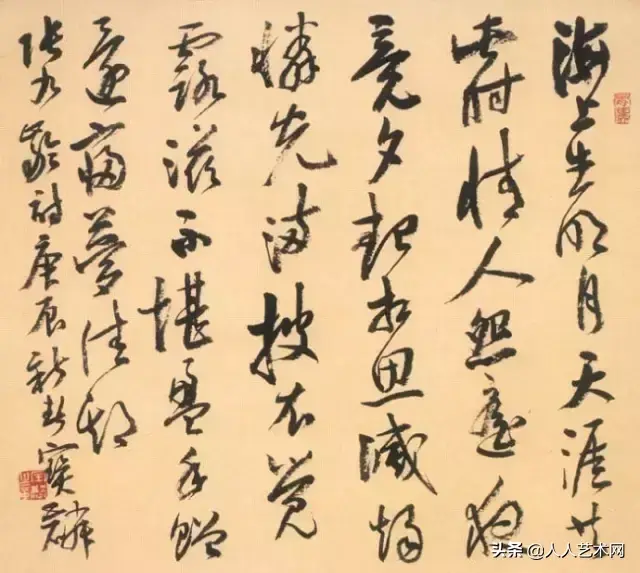 海上生明月天涯共
此时情人怨遥夜
竟夕起相思滅燭
憐光满披衣觉
露滋不堪盈手赠
還寝夢佳期
張九齡詩庚辰新春寶麟
头条 @人人艺术网